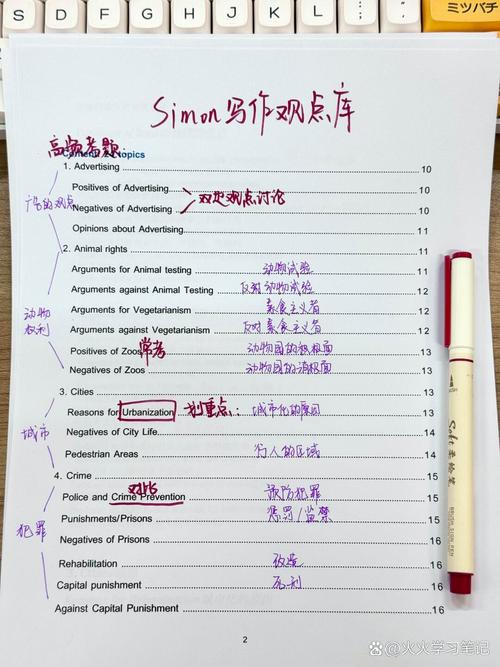 S D F G H J K L ミツバチ
Simon写作观点库
高频考题
Content / Topics
1. Advertising ........ 10
广告的观点
Positives of Advertising ........ 10
双边观点讨论
Negatives of Advertising ........ 10
Opinions about Advertising ........ 11
2. Animal rights ........ 11
Arguments for Animal testing 动物试验 11
Arguments against Animal Testing 反对动物试验 12
动物权利
Arguments for Vegetarianism 素食主义者 12
Arguments against Vegetarianism 反对素食主义者 12
Positives of Zoos 常考 动物园的积极面 13
Negatives of Zoos 动物园的消极面 13
3. Cities ........ 13
Reasons for Urbanization 划重点: 城市化的原因 13
城市
Negatives of City Life ........ 14
Pedestrian Areas 行人的区域 14
4. Crime ........ 15
Police and Crime Prevention 预防犯罪 15
犯罪
Punishments/Prisons 惩罚/监禁 15
Negatives of Prisons ........ 16
Rehabilitation 改造 16
Capital punishment 死刑 16
Against Capital Punishment ........ 16
2
Soft 柔绘笔
BRUSH SIGN PEN
@火火学习笔记